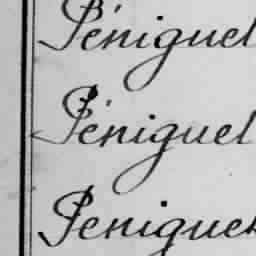 Péniguel
Péniguel
Peniguel